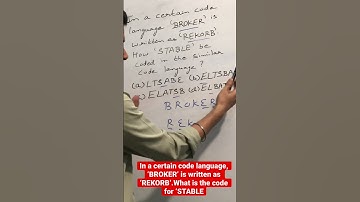 In a certain code
language 'BROKER' is
written as 'REKORB'
How 'STABLE' be
Coded in the similar
Code language ?
(a) LTSABE (b) ELTSBA
ELATSB (d) ELBAT
BROKER
R E K
In a certain code language,
'BROKER' is written as
'REKORB'.What is the code
for 'STABLE